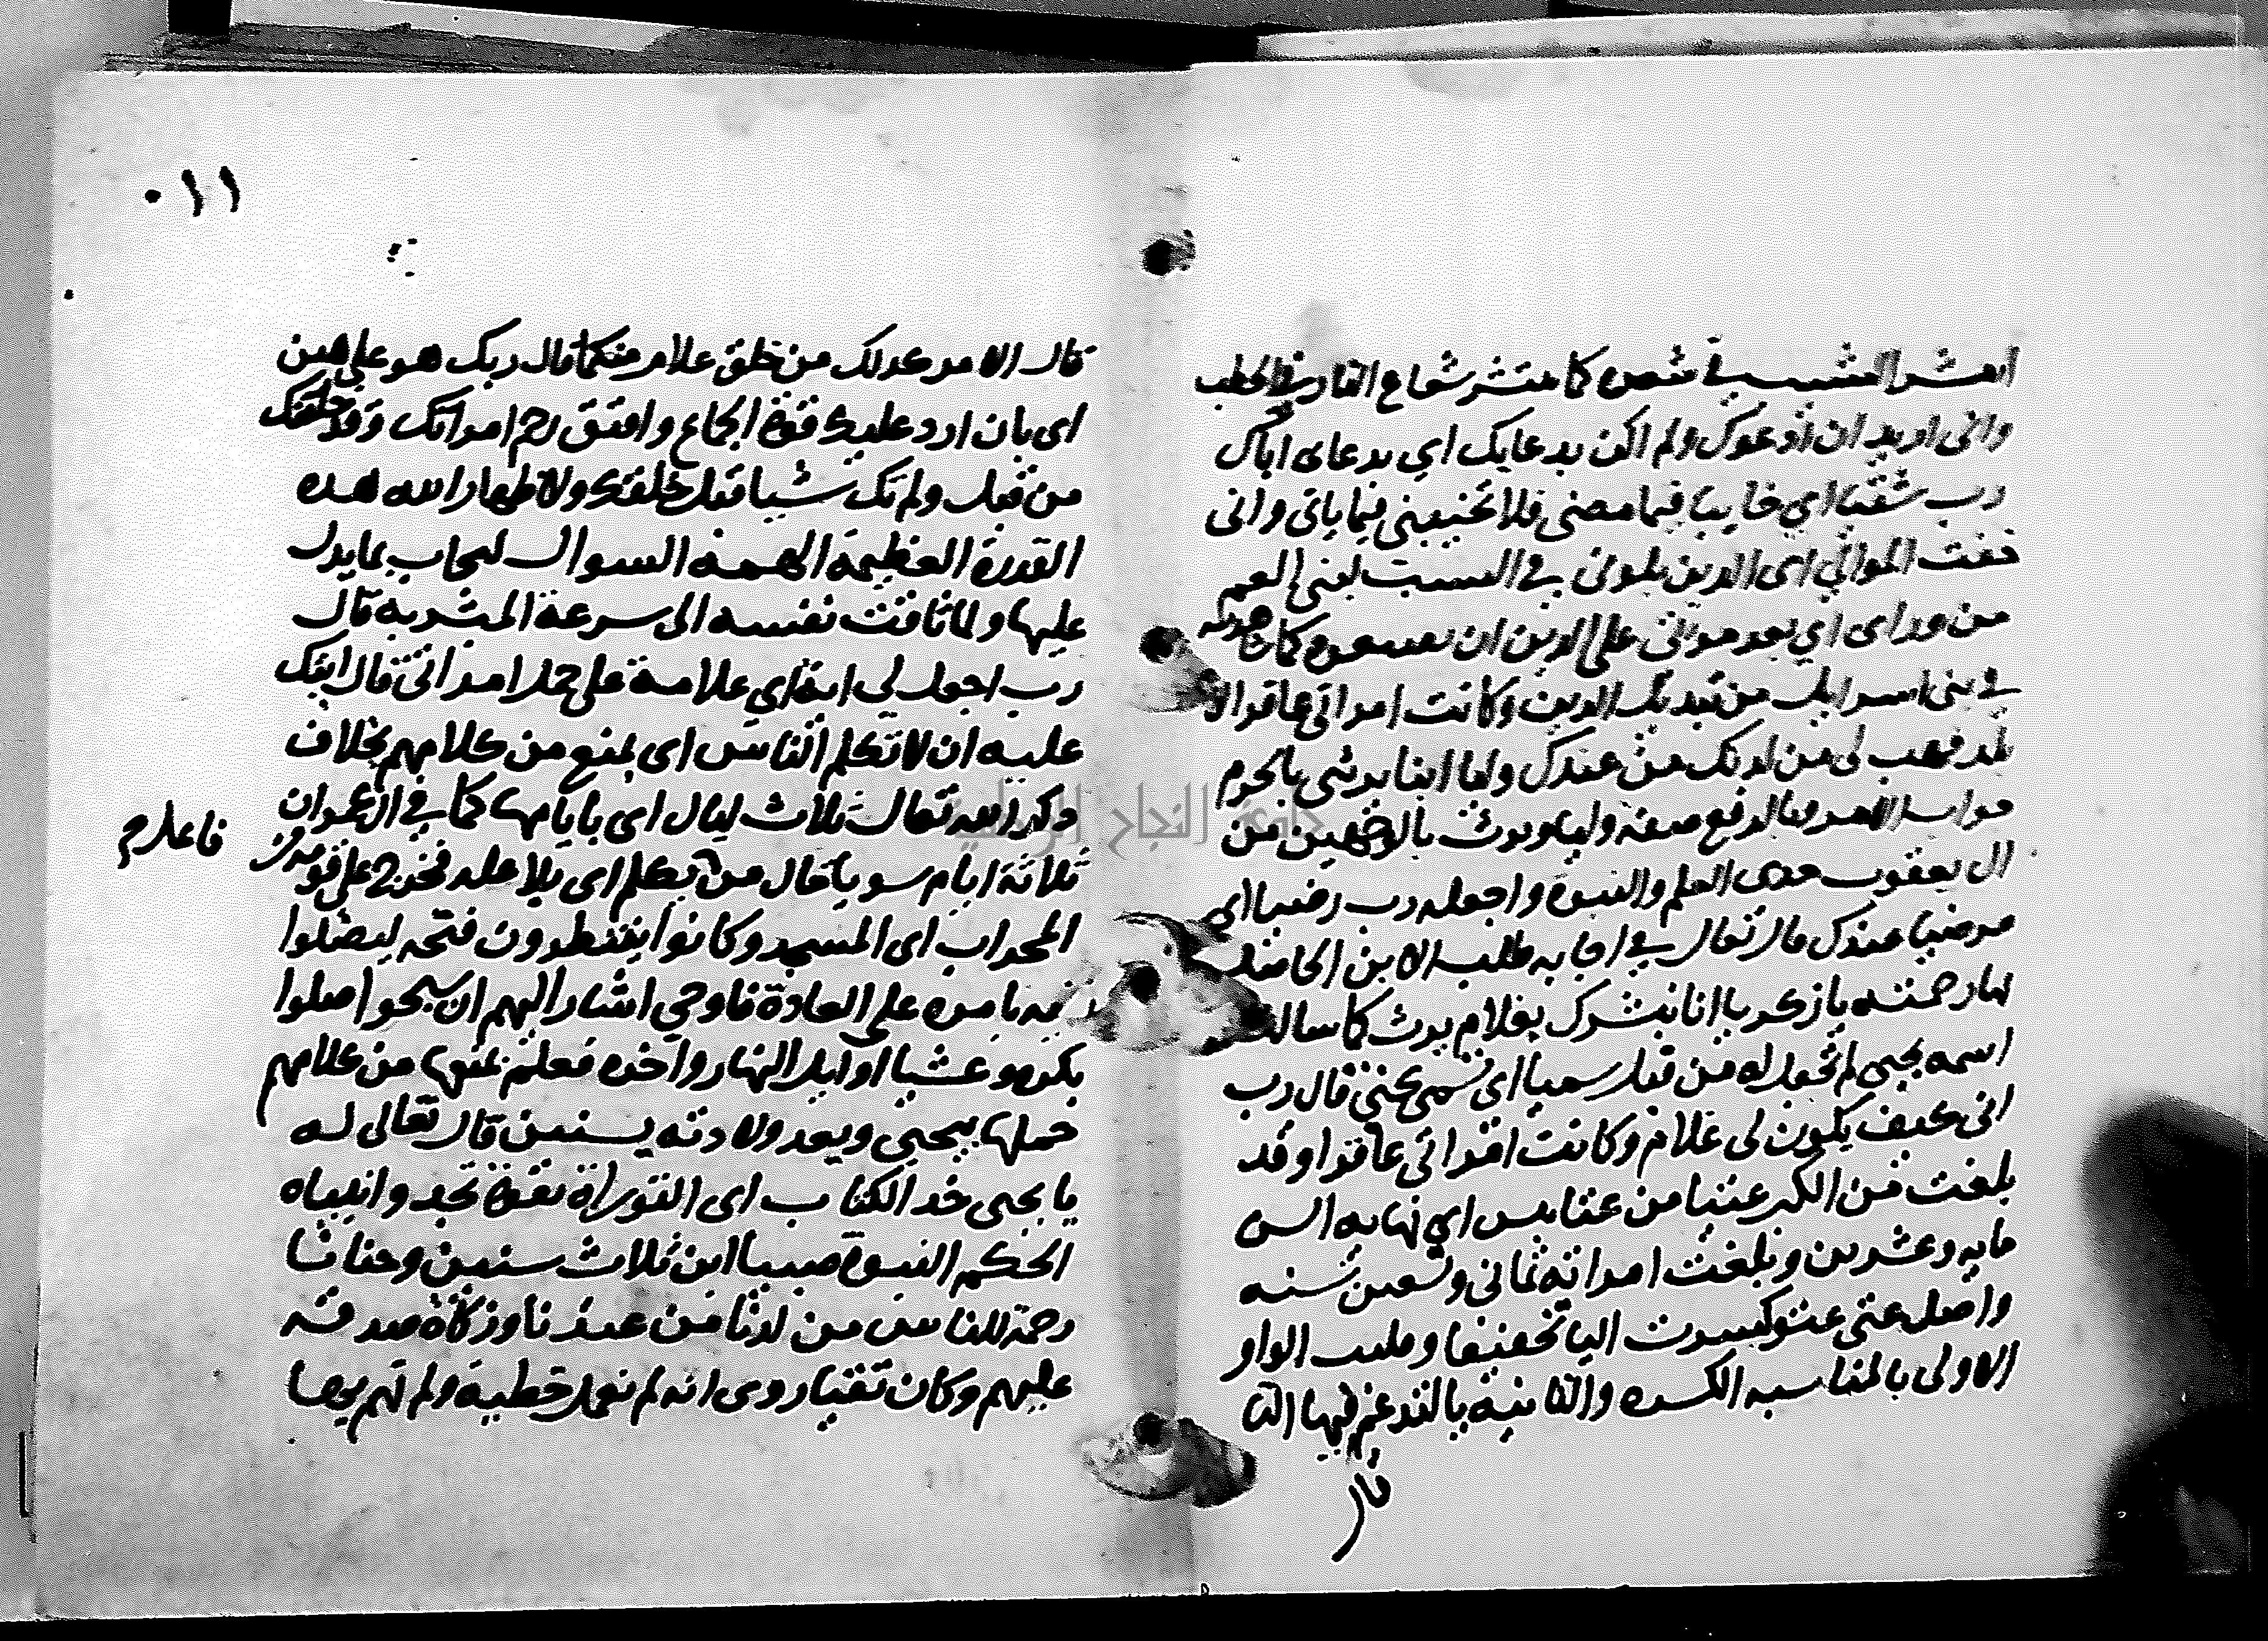 انتشر الشيب في شعره كما ينتشر شعاع النار في الحطب
واني اريد ان ادعوك ولم اكن بدعايك اي بدعاى اياك
رب شقيا اي خايبا فيما مضى فلا تخيبني فيما ياتى وانى
خفت الموالي اى الدين يلونى في النسب كبنى العم
من وراى اي بعد موتى على الدين ان يضيعوه كما شاهدته
في بنى اسرايل من تبديل الدين وكانت امراتي عاقرا لا
تلد فهب لى من لدنك من عندك وليا ابنا يرثنى بالجزم
جواب الامر وبالرفع صفة وليا ويرث بالوجهين من
ال يعقوب جدى العلم والنبوة واجعله رب رضيا اي
مرضيا عندك قال تعالى في اجابة طلبه الابن الحاصل
بها رحمته يا زكريا انا نبشرك بغلام يرث كما سالت
اسمه يحيى لم نجعل له من قبل سميا اى مسمى بيحيى قال رب
انى كيف يكون لى غلام وكانت امراتى عاقرا وقد
بلغت من الكبر عتيا من عتا يبس اي نهاية السن
ماية وعشرين وبلغت امراته ثمانى وتسعين سنه
واصل عتى عتو وكسرت التا تخفيفا وقلبت الواو
الاولى يا لمناسبة الكسره والثانية يا لتدغم فيها اليا
قال
١١٠
قال الامر كدلك من خلق غلام منكما قال ربك هو علي هين
اى بان ارد عليك قوة الجماع وافتق رحم امراتك وقد خلقتك
من قبل ولم تك شيا قبل خلقك ولاظهار الله هده
القدرة العظيمة الهمه السوال ليجاب بما يدل
عليها ولما تاقت نفسه الى سرعة المبشر به قال
رب اجعل لي اية اي علامة على حمل امراتى قال ايتك
عليه ان لا تكلم الناس اى تمنع من كلامهم بخلاف
دكر الله تعالى ثلاث ليال اى بايامها كما في ال عمران
ثلاثة ايام سويا حال من تكلم اى بلا علة فخرج على قومه من
فاعل
المحراب اى المسجد وكانوا ينتظرون فتحه ليصلوا
فيه بامره على العادة فاوحى اشار اليهم ان سبحوا صلوا
بكرة وعشيا اوايل النهار واخره فعلم بمنعه من كلامهم
حملها بيحيى وبعد ولادته بسنين قال تعالى له
يا يحيى خد الكتاب اى التوراة بقوة بجد واتيناه
الحكم النبوة صبيا ابن ثلاث سنين وحنانا
رحمة للناس من لدنا من عندنا وزكاة صدقة
عليهم وكان تقيا روى انه لم يعمل خطية ولم يهم بها
جامعة النجاح الوطنية